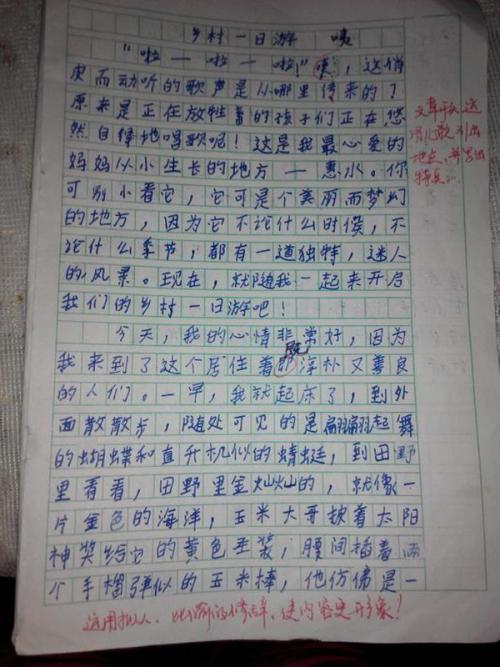 乡村一日游
“啦—啦—啦！”咦，这俏
皮而动听的歌声是从哪里传来的？
原来是正在放牲着的孩子们正在悠
然自得地唱歌呢！这是我最心爱的
妈妈从小生长的地方—惠水。你
可别小看它，它可是个美丽而梦幻
的地方，因为它不论什么时候，不
论什么季节，都有一道独特，迷人
的风景。现在，就随我一起来开启
我们的乡村一日游吧！
今天，我的心情非常好，因为
我来到了这个居住着既淳朴又善良
的人们。一早，我就起床了，到外
面散散步，随处可见的是翩翩起舞
的蝴蝶和直升机似的蜻蜓，到田野
里看看，田野里金灿灿的，就像一
片金色的海洋，玉米大哥披着太阳
神奖给它的黄色圣装，腰间插着两
个手榴弹似的玉米棒，他仿佛是一
文章开头
引出
地点，并写出
特点。
运用拟人、比喻的修辞，使内容更形象！